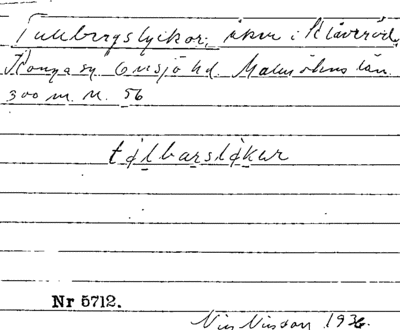 Tullbergslyckor, åker i Klåveröd,
Konga sn. Onsjö hd. Malmöhus län.
300 m. N. 56
tålbarslåkur
Nr 5712.
Nils Nilsson 1936.